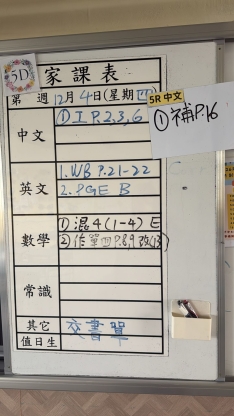 5D
家課表
第 週 12月4日(星期四)
5R 中文
①補P.16
中文
①工P.2,3,6
英文
1. WB P.21-22
2. PGE B
數學
①混4(1-4) E
②作單四P.8,9 改(3)
常識
其它
交書單
值日生